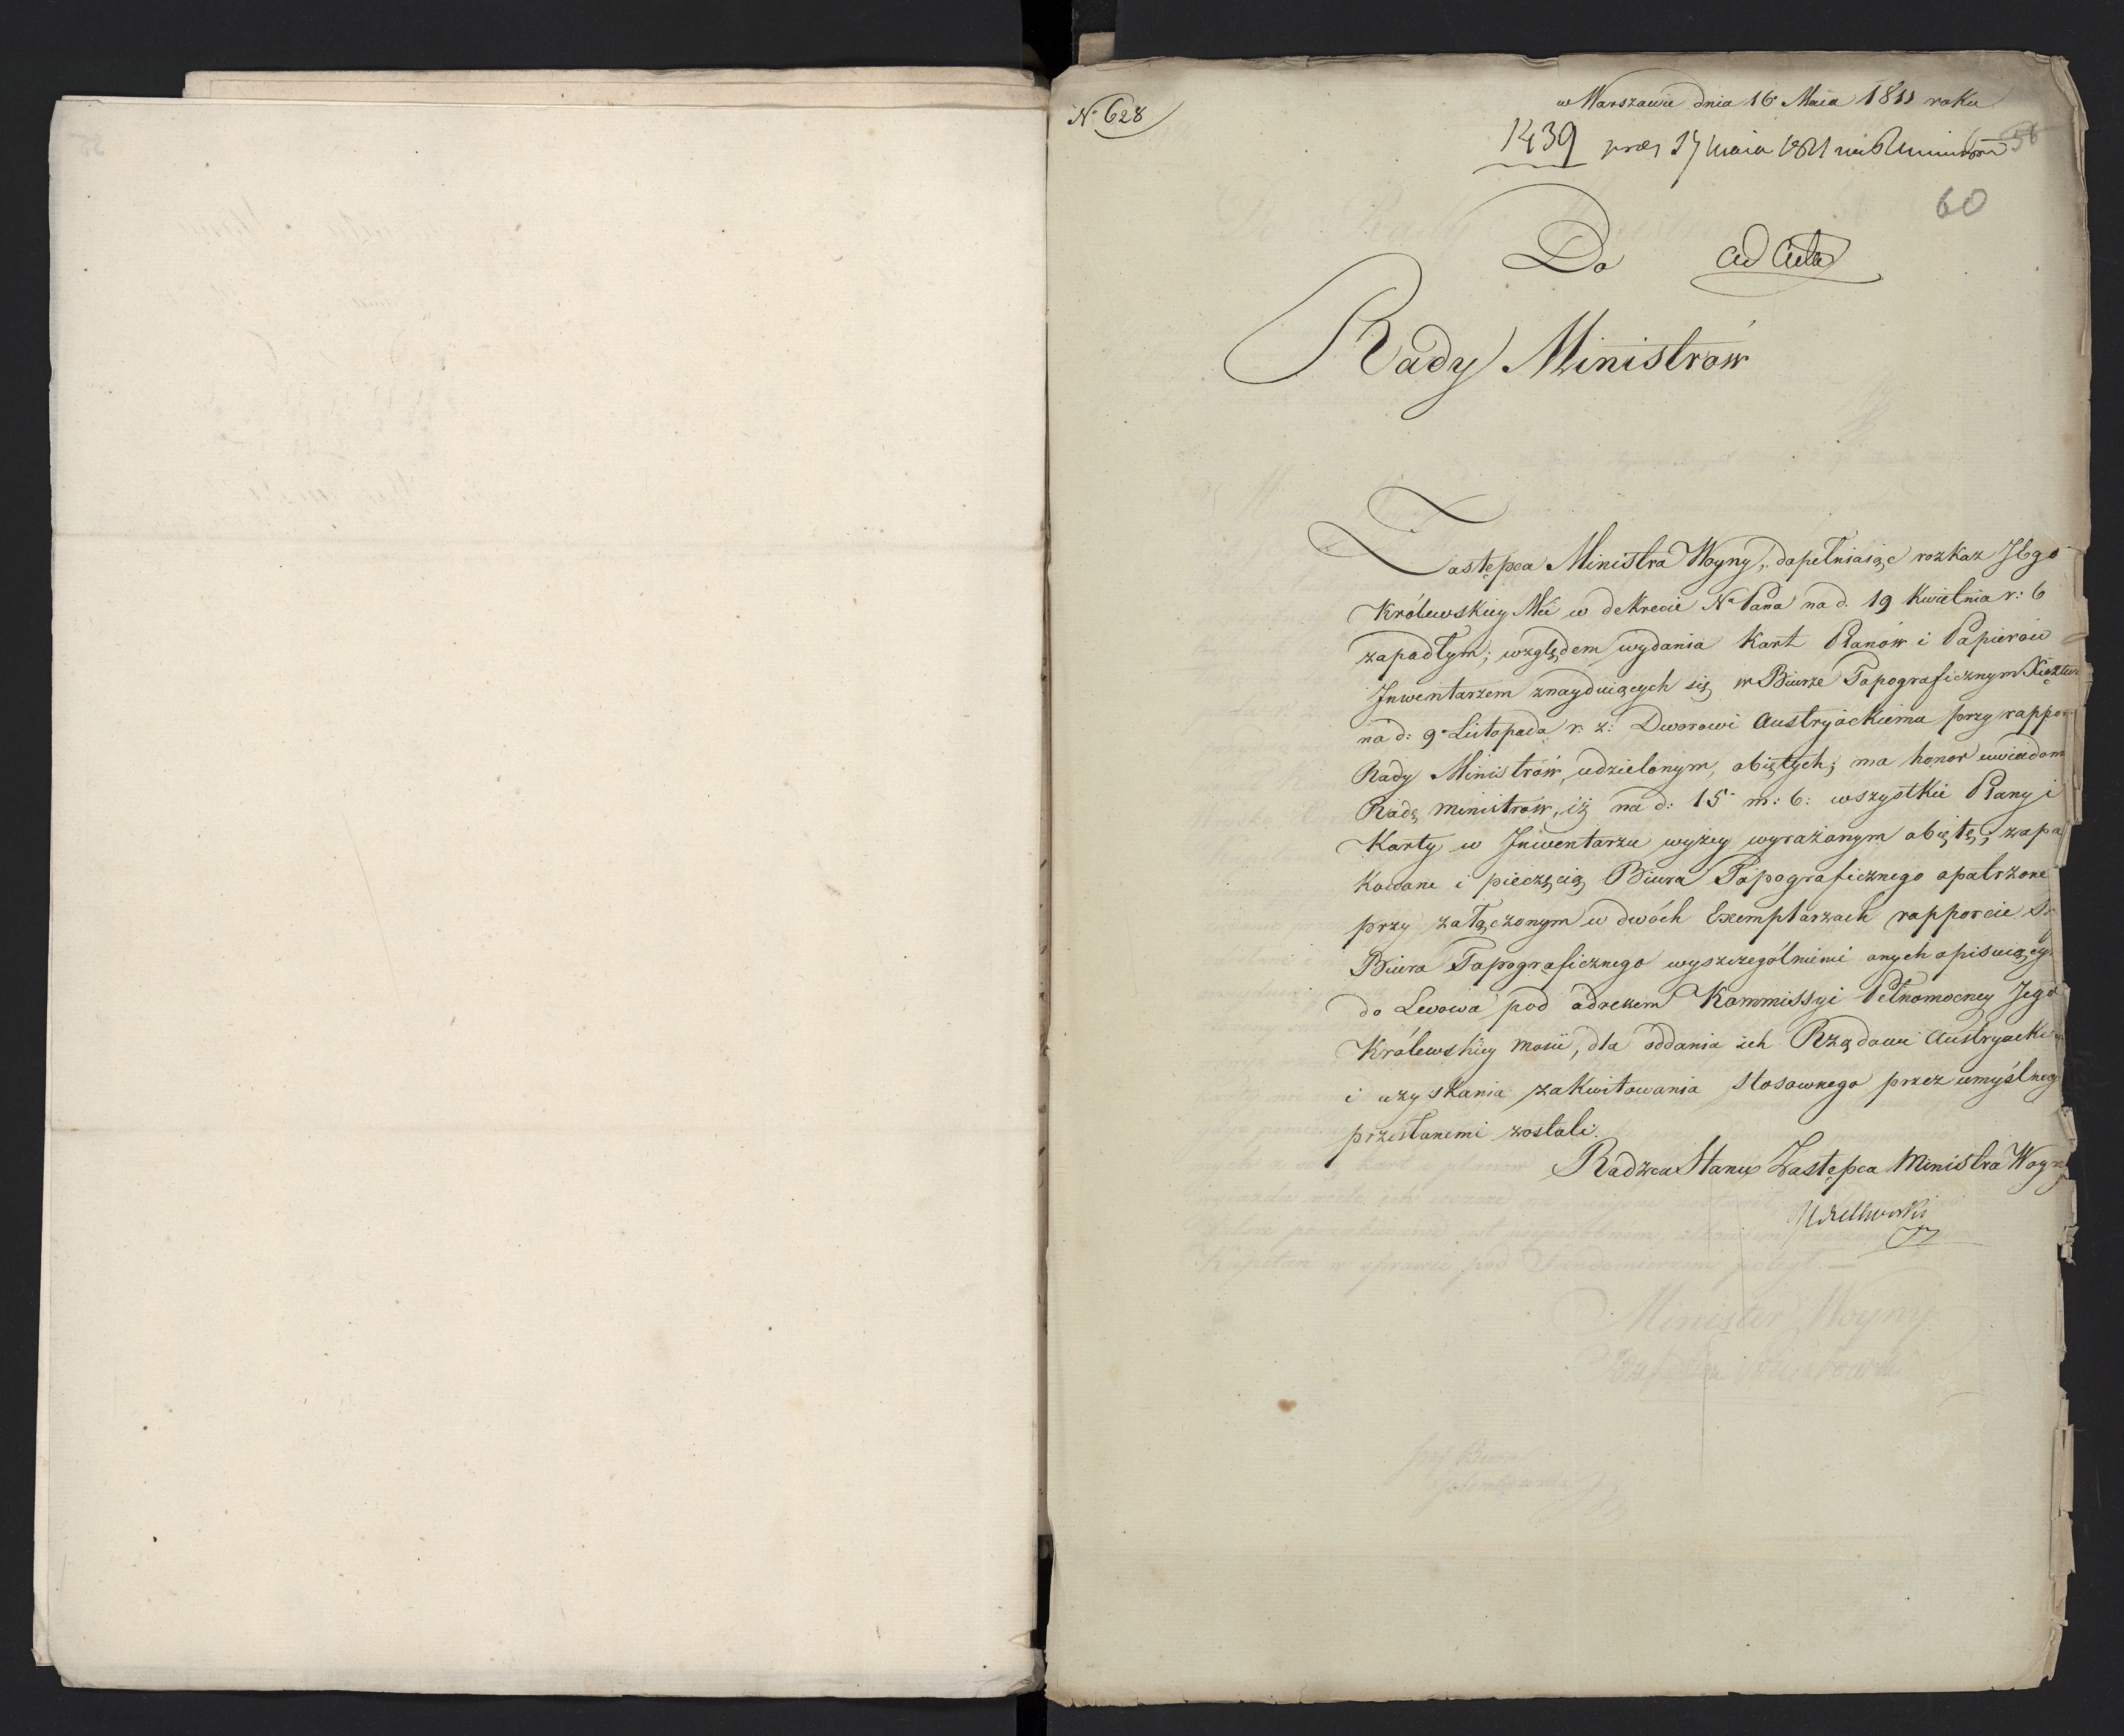 No 628
w Warszawie dnia 16 Maia 1811 roku
1439 præs 17 Maia 1811
56
60
Do ad acta
Rady Ministrów
Zastępca Ministra Woyny, dopełniaiąc rozkaz JEgo
Królewskiey Mci w dekrecie Na Pana na d. 19 Kwietnia r: b
zapadłym; względem wydania Kart Planów i Papierów
Inwentarzem znayduiących się w Biurze Topograficznym Xięztwa
na d: 9o Listopada r: z: Dworowi Austryackiemu przy rappor
Rady Ministrów, udzielonym, obiętych; ma honor uwiadom
Radę Ministrów, iż na d: 15o m: b: wszystkie Plany i
Karty w Inwentarzu wyżey wyrażonym obięte; zapa
kowane i pieczęcią Biura Topograficznego opatrzone
przy załączonym w dwóch Exemplarzach rapporcie
Biura Topograficznego wyszczególnienie onych opisuiący
do Lwowa pod adresem Kommissyi Pełnomocney Jego
Królewskiey Mości, dla oddania ich Rządowi Austryacki
i uzyskania zakwitowania stosownego przez umyślneg
przesłanemi zostali.
Radzca Stanu Zastępca Ministra Woyny
Wielhorski